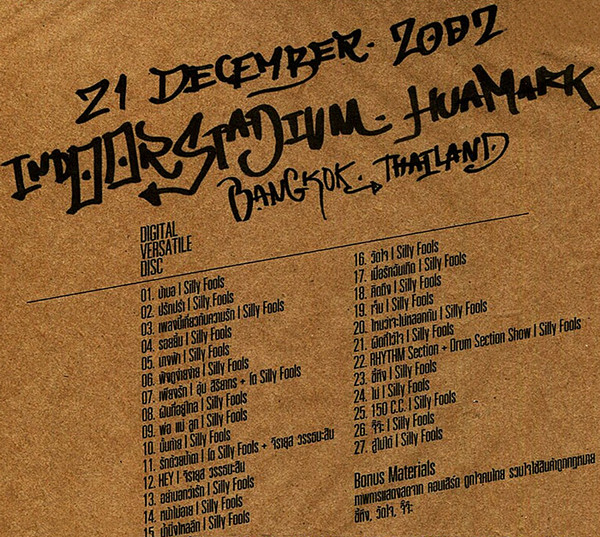 21 DECEMBER. 2002
INDOOR STADIUM. HUAMARK
BANGKOK. THAILAND
DIGITAL
VERSATILE
DISC
01. บ้าบอ | Silly Fools
02. ปรักปรำ | Silly Fools
03. เพลงนี้เกี่ยวกับความรัก | Silly Fools
04. รอยยิ้ม | Silly Fools
05. นางฟ้า | Silly Fools
06. ฟังดูง่ายง่าย | Silly Fools
07. เพียงรัก | อุ๋น ศิริยากร + โต Silly Fools
08. ฝันที่อยู่ไกล | Silly Fools
09. พ่อ แม่ ลูก | Silly Fools
10. บั้นท้าย | Silly Fools
11. รักด้วยน้ำตา | โต Silly Fools + จิรายุส วรรธนะสิน
12. HEY | จิรายุส วรรธนะสิน
13. อย่าบอกว่ารัก | Silly Fools
14. หน้าไม่อาย | Silly Fools
15. น้ำนิ่งไหลลึก | Silly Fools
16. วัดใจ | Silly Fools
17. เมื่อรักฉันเกิด | Silly Fools
18. คิดถึง | Silly Fools
19. | Silly Fools
20. ไหนว่าจะไม่หลอกกัน | Silly Fools
21. ผิดที่ไว้ใจ | Silly Fools
22. RHYTHM Section + Drum Section Show | Silly Fools
23. ขี้หึง | Silly Fools
24. ไม่ | Silly Fools
25. 150 C.C. | Silly Fools
26. จิ๊จ๊ะ | Silly Fools
27. สู้ไม่ได้ | Silly Fools
Bonus Materials
ภาพการแสดงสดจาก คอนเสิร์ต ถูกใจคนไทย รวมใจใช้สินค้าถูกกฎหมาย
ขี้หึง, วัดใจ, จิ๊จ๊ะ